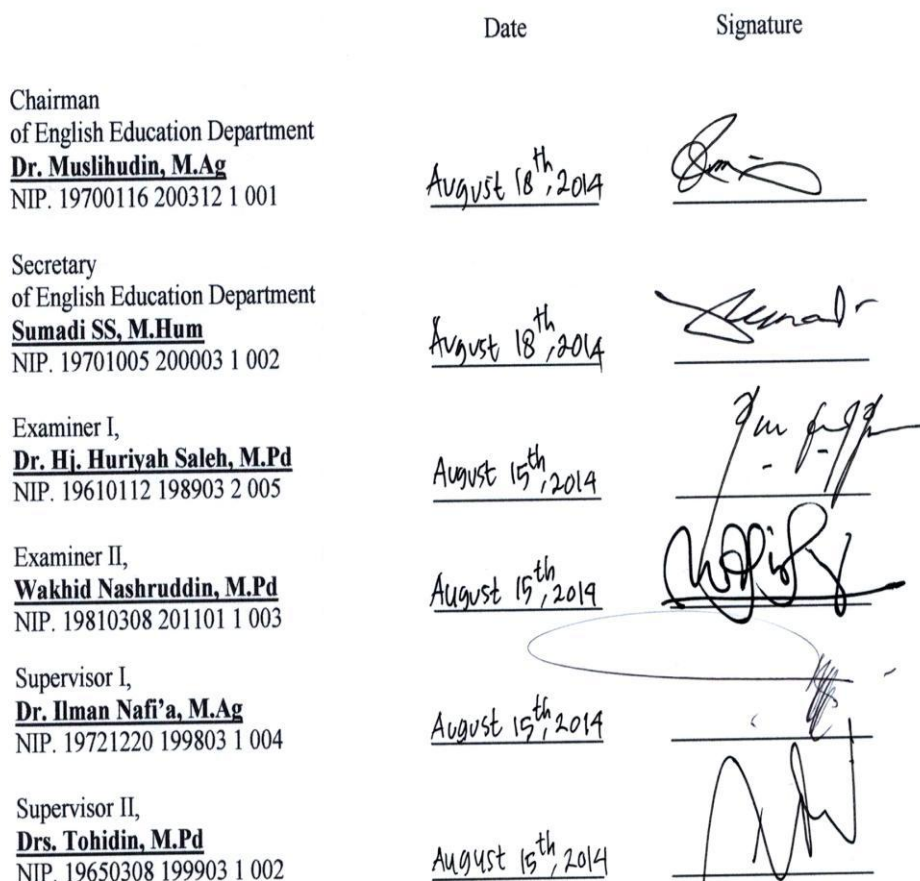 Date Signature
Chairman
of English Education Department
Dr. Muslihudin, M.Ag
NIP. 19700116 200312 1 001
August 18th, 2014
Secretary
of English Education Department
Sumadi SS, M.Hum
NIP. 19701005 200003 1 002
August 18th, 2014
Examiner I,
Dr. Hj. Huriyah Saleh, M.Pd
NIP. 19610112 198903 2 005
August 15th, 2014
Examiner II,
Wakhid Nashruddin, M.Pd
NIP. 19810308 201101 1 003
August 15th, 2014
Supervisor I,
Dr. Ilman Nafi’a, M.Ag
NIP. 19721220 199803 1 004
August 15th, 2014
Supervisor II,
Drs. Tohidin, M.Pd
NIP. 19650308 199903 1 002
August 15th, 2014